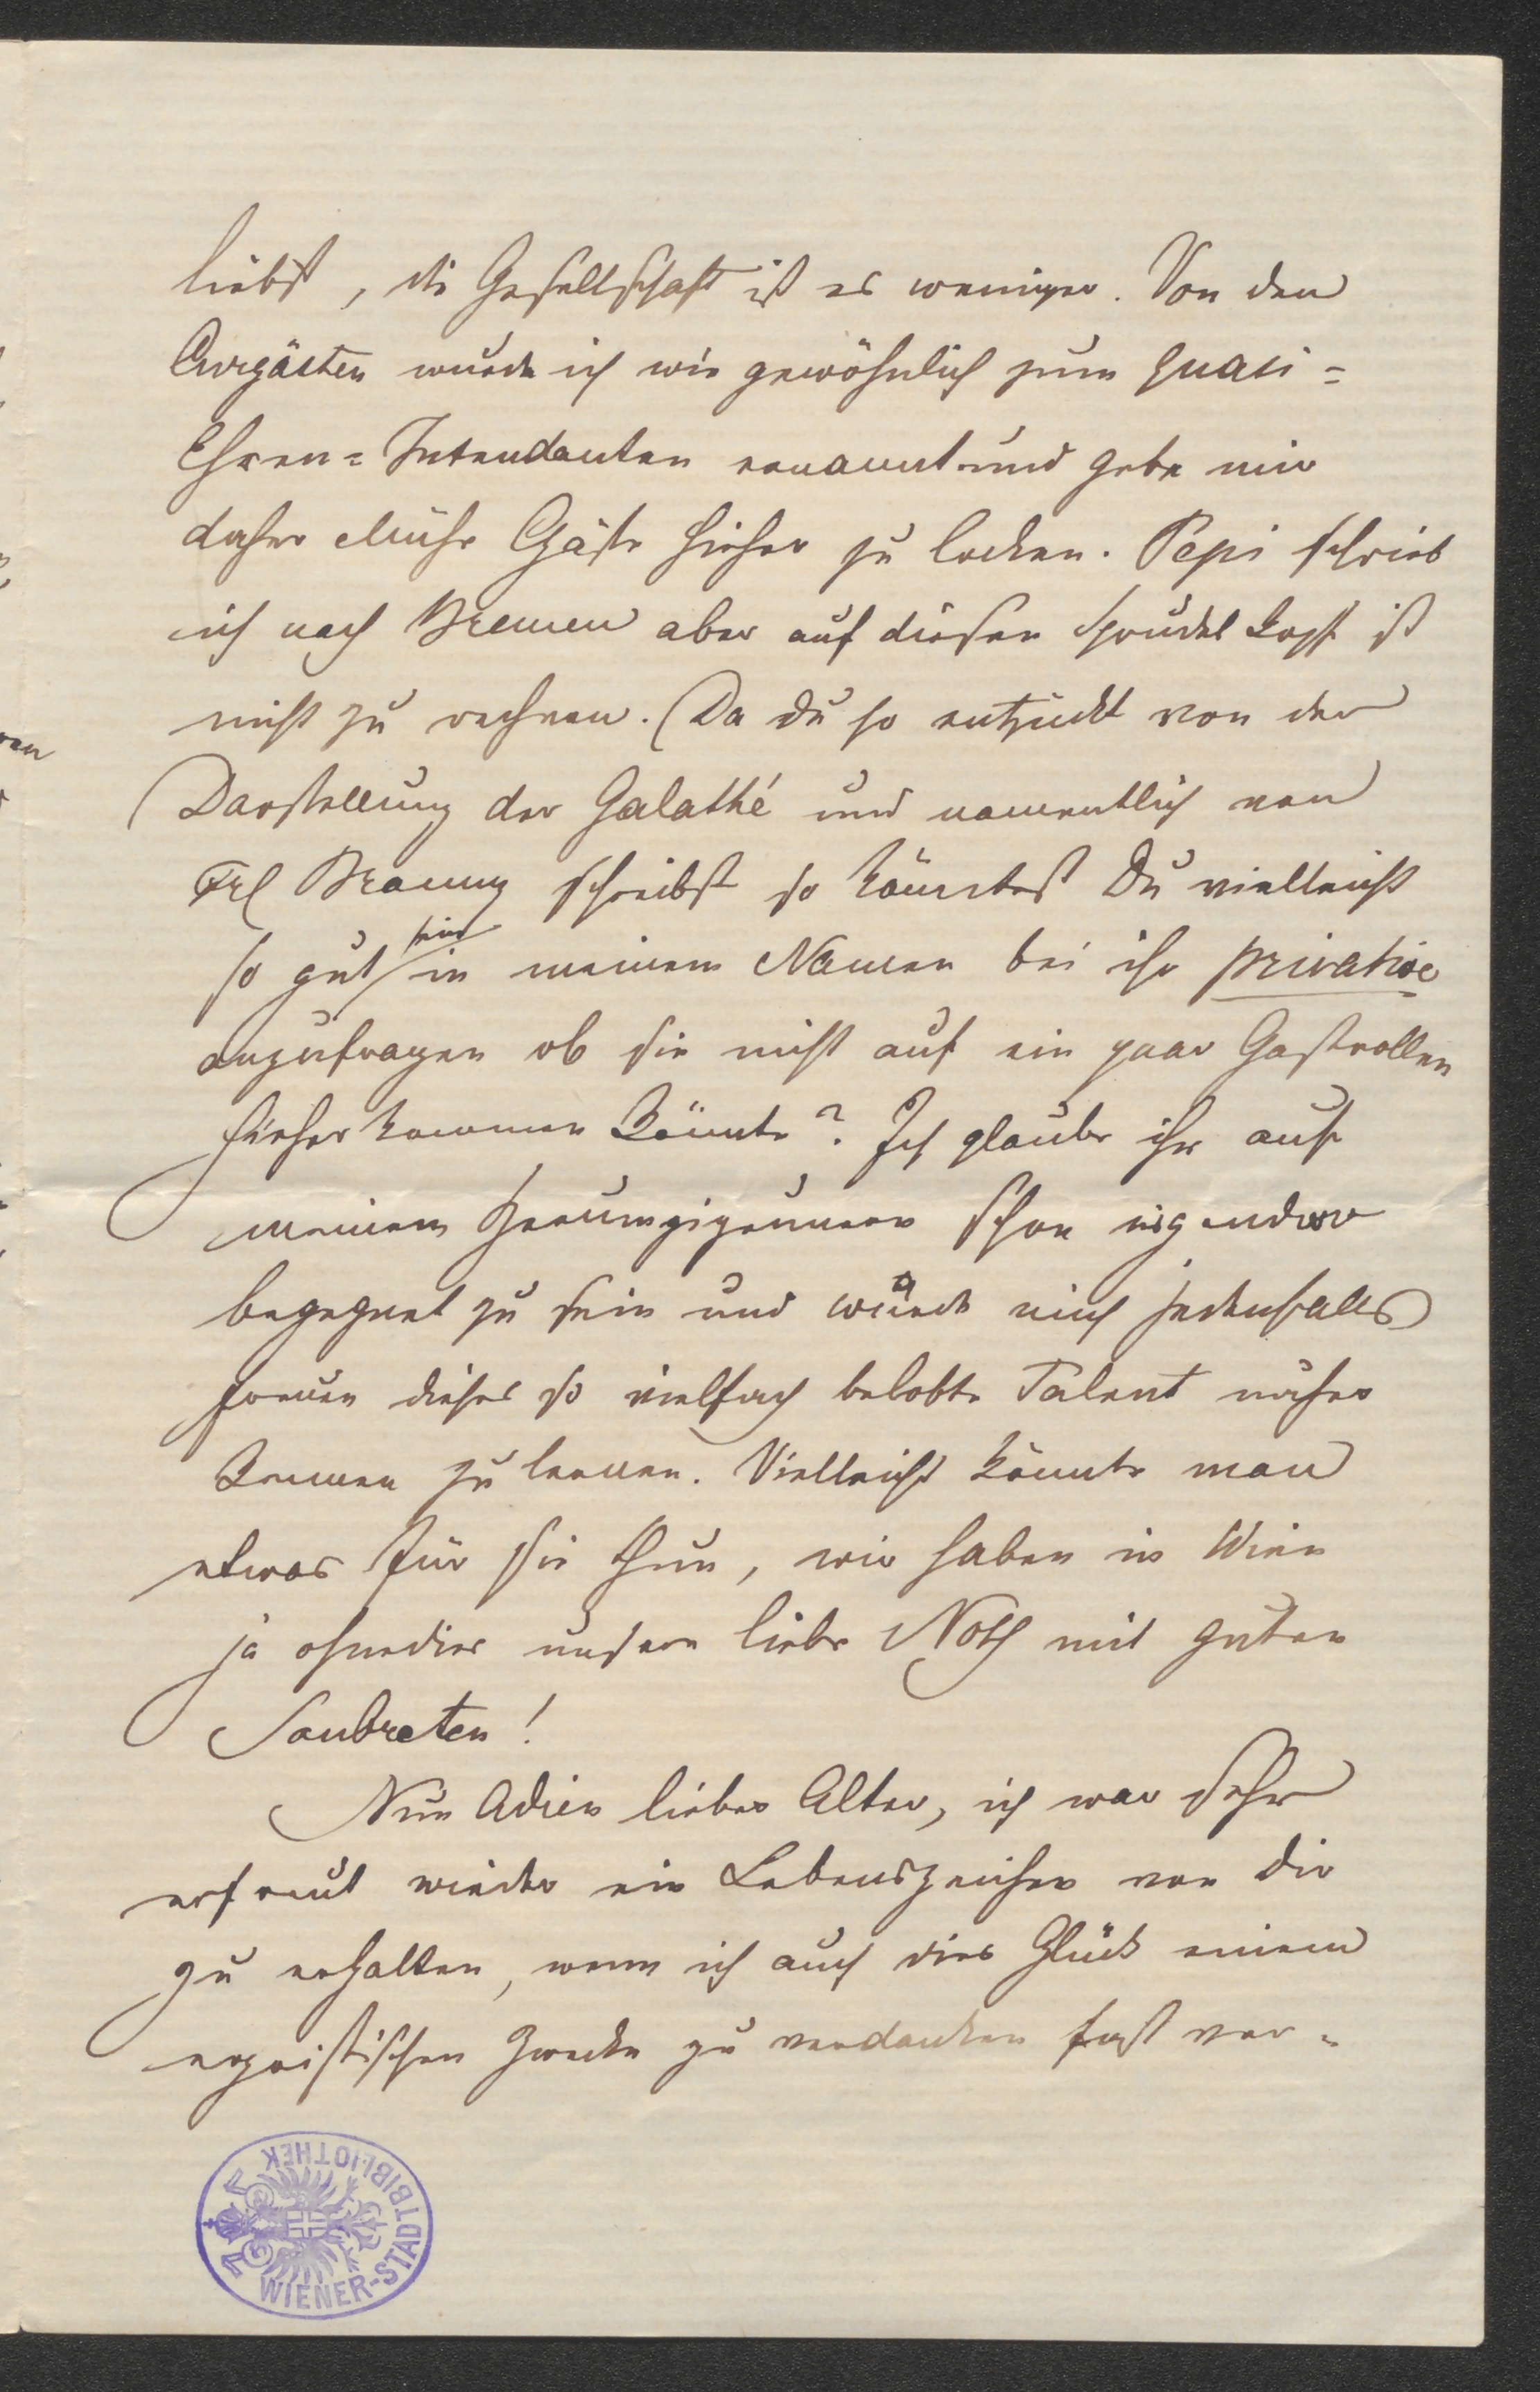 liebst, die Gesellschaft ist es weniger. Von den
Curgästen wurde ich wie gewöhnlich zum quasi=
Ehren=Intendanten ernannt und gebe mir
daher Mühe Gäste hieher zu locken. Pepi schrieb
ich nach Bremen aber auf diesen Sprudelkopf ist
nicht zu rechnen. Da Du so entzückt von der
Darstellung der Galathé und namentlich von
Frl schreibst so könntest Du vielleicht
so gut sein in meinem Namen bei ihr privative
anzufragen ob sie nicht auf ein paar Gastrollen
hieher kommen könnte? Ich glaube ihr auf
meinem Herumzigeunern schon irgendwo
begegnet zu sein und würde mich jedenfalls
freuen dieses so vielfach belobte Talent näher
kennen zu lernen. Vielleicht könnte man
etwas für sie thun, wir haben in Wien
ja ohnedies unsere liebe Noth mit guten
Soubreten!
Nun Adieu lieber Alter, ich war sehr
erfreut wieder ein Lebenszeichen von Dir
zu erhalten, wenn ich auch dies Glück einem
egoistischen Zwecke zu verdanken fast ver=
WIENER-STADTBIBLIOTHEK